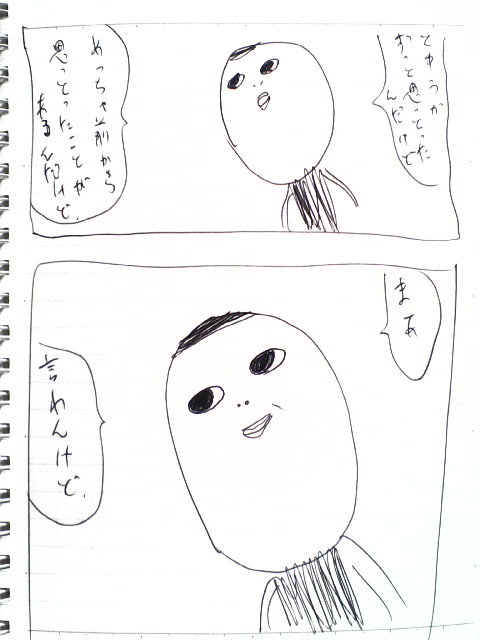 とゆうか
ずっと思っとった
んだけど
めっちゃ前から
思っとったことが
あるんだけど、
まあ
言わんけど、